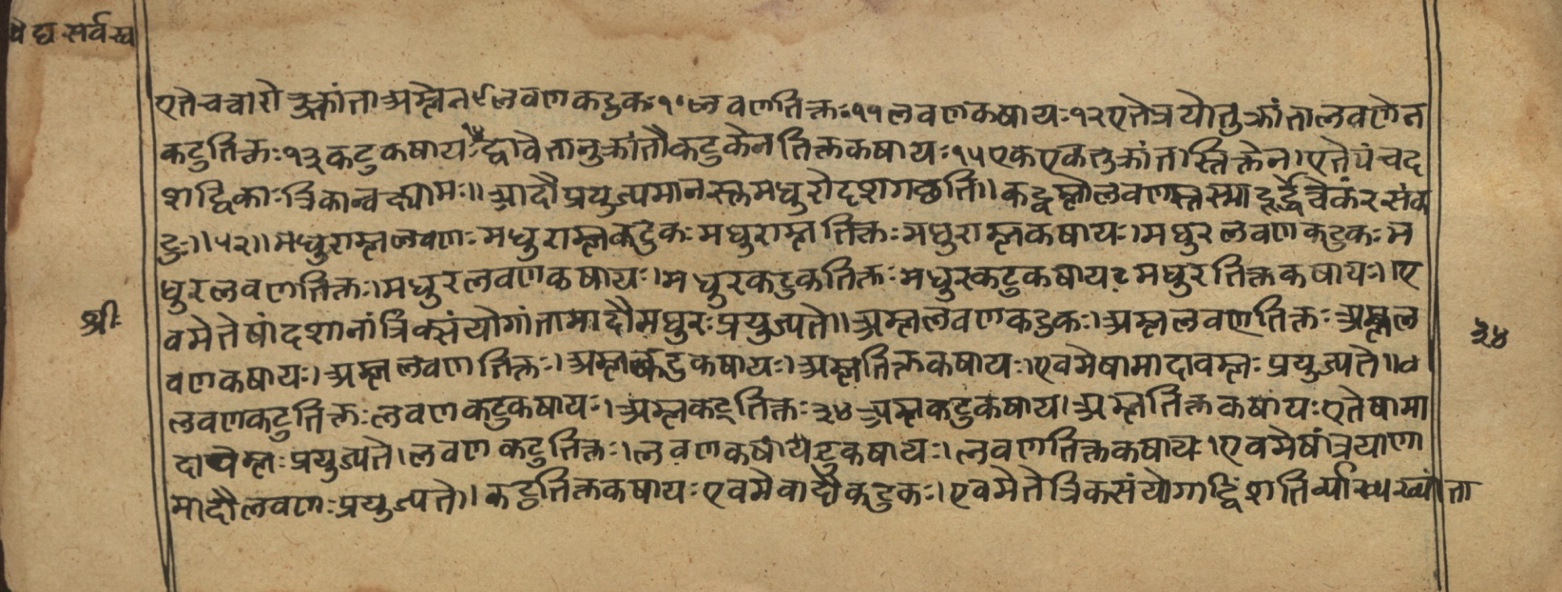 वैद्य सर्वस्व
एते चत्वारो नुक्रांता अम्लेन ९ लवण कटुकः १० लवणतिक्तः ११ लवणकषायः १२ एते त्रयो नुक्रांता लवणेन
कटुतिक्तः १३ कटुकषायः द्वावेतानुक्रांतौ कटुकेन तिक्तकषायः १५ एक एकनुक्रांतास्तिक्तेन। एते पंचद
शद्विकाः त्रिकान्वक्ष्यामः॥ आदौ प्रयुज्यमानस्तु मधुरो दश गछति॥ कट्वम्लो लवणस्तस्मादूर्द्ध्वं चैकं रसं क
टुः॥५२॥ मधुराम्ललवणः मधुराम्लकटुकः मधुराम्लतिक्तः मधुराम्लकषायः। मधुर लवण कटुकः म
धुरलवणतिक्तः। मधुरलवणकषायः। मधुरकटुकतिक्तः मधुरकटुकषायः मधुरतिक्तकषायः। ए
वमेतेषां दशानां त्रिकसंयोगांतामादौ मधुरः प्रयुज्यते॥ अम्ललवणकटुकः। अम्ललवणतिक्तः अम्लल
श्रीः
३४
वणकषायः। अम्ललवणतिक्तः। अम्लकटुकषायः। अम्लतिक्तकषायः। एवमेषामादावम्लः प्रयुज्यते॥
लवणकटुतिक्तः लवणकटुकषायः। अम्लकटुतिक्तः ३४ अम्लकटुकषाय। अम्लतिक्तकषायः एतेषामा
दावम्लः प्रयुज्यते। लवण कटुतिक्तः। लवणकषाय टुकषायः। लवणतिक्तकषायः। एवमेषां त्रयाणा
मादौ लवणः प्रयुज्यते। कटुतिक्तकषायः एवमेवादौ कटुकः। एवमेते त्रिकसंयोगाद्विंशति